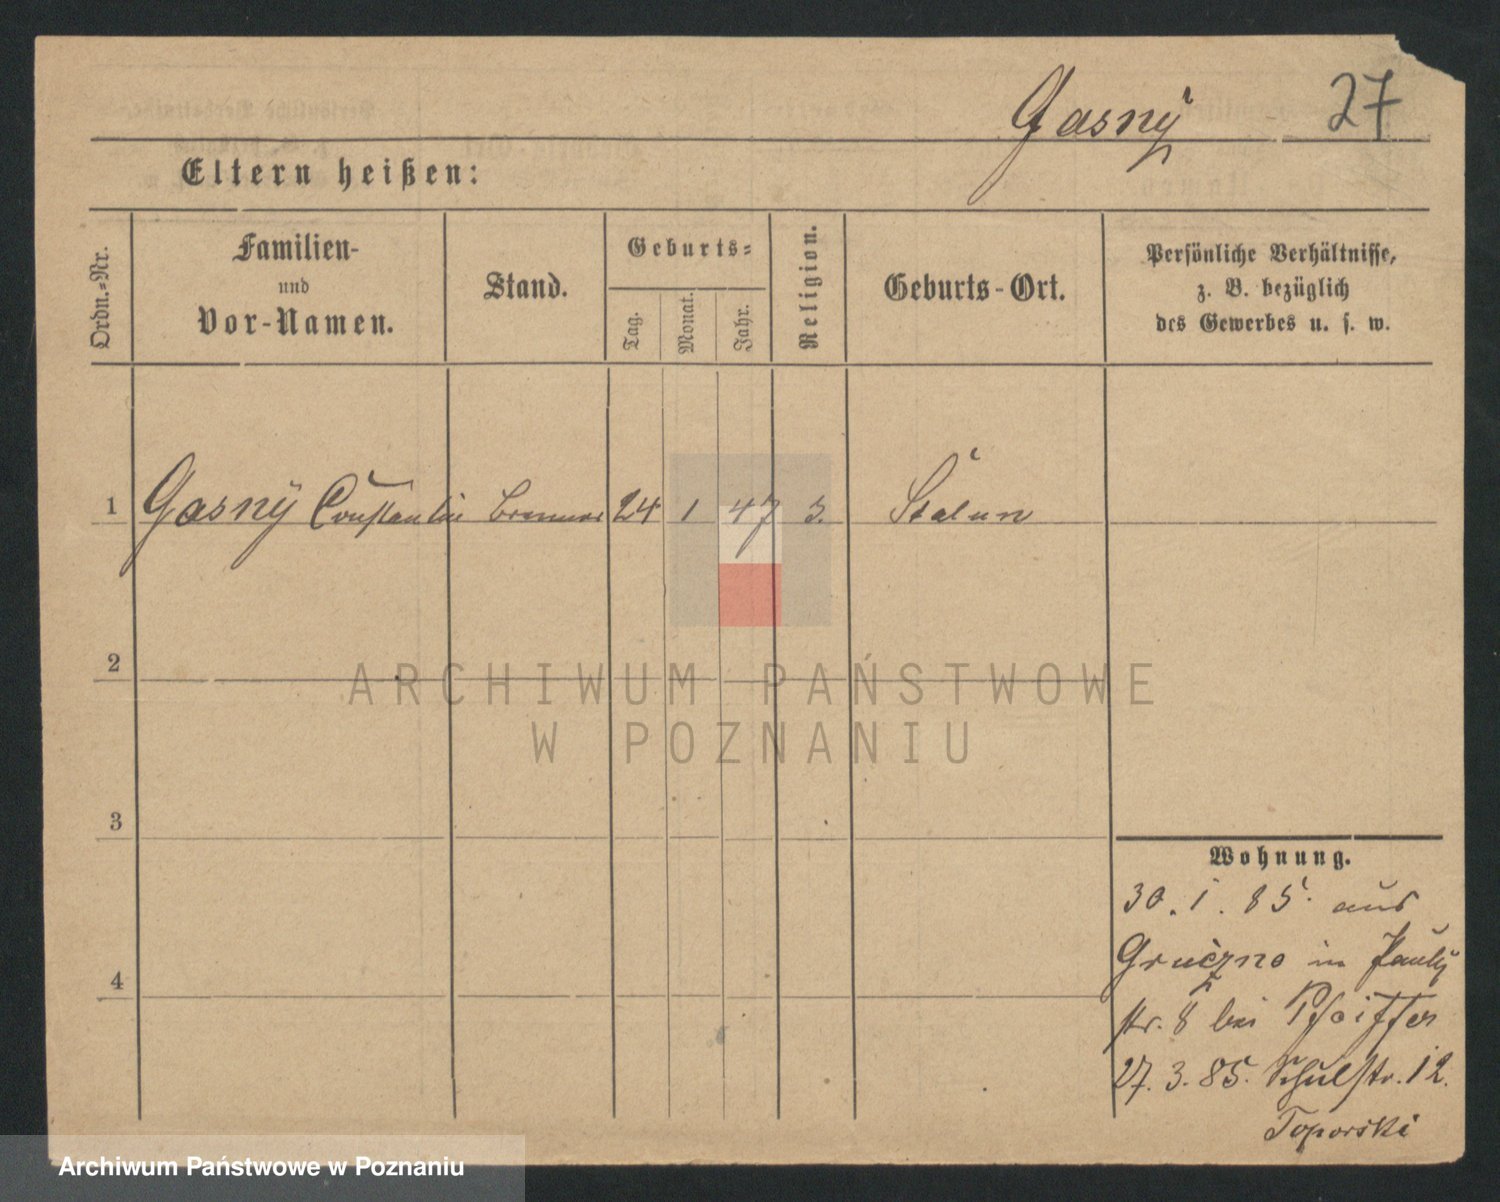 Gasny 27
Eltern heißen:
Ordn.-Nr.
Familien-
und
Vor-Namen.
Stand.
Geburts-
Tag.
Monat.
Jahr.
Religion.
Geburts-Ort.
Persönliche Verhältnisse,
z. B. bezüglich
des Gewerbes u. s. w.
1 Gasny Constantin Brenner 24 1 47 3.
2
ARCHIWUM PAŃSTWOWE
W POZNANIU
3
4
Wohnung.
30. 1. 85. aus
Gruczno in Pauli
str. 8 bei Pfeiffer
27. 3. 85. Schulstr. 12.
Toporski
Archiwum Państwowe w Poznaniu